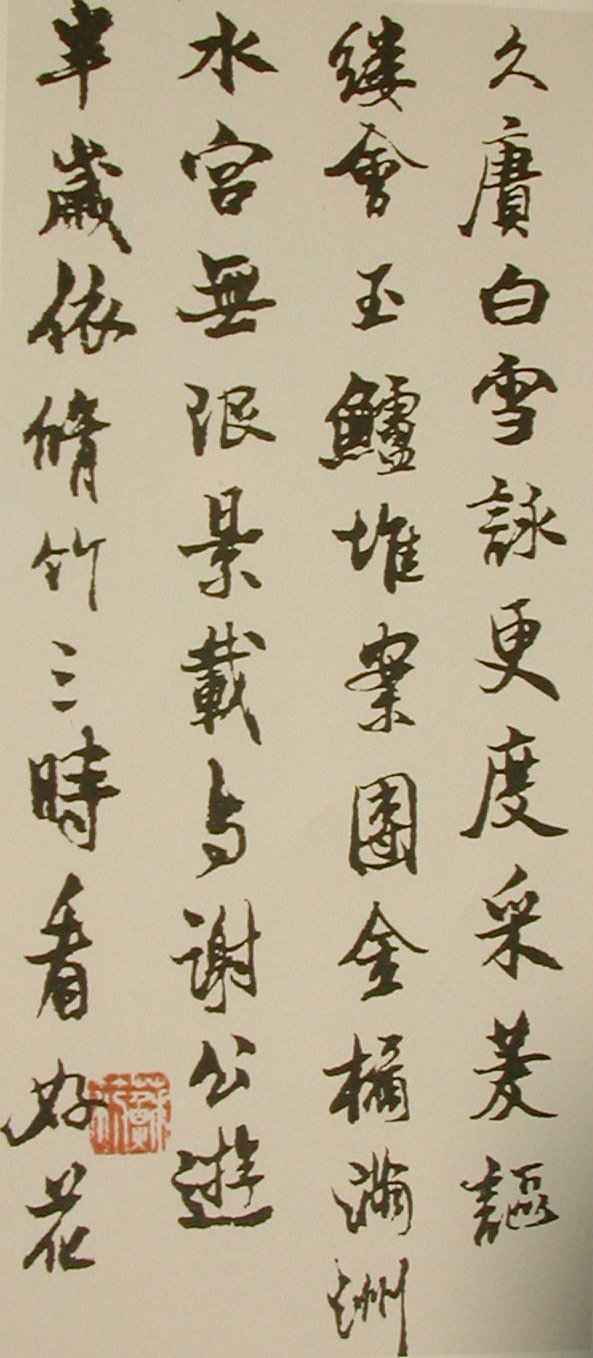 久賡白雪詠更度采菱謳
縷會玉鱸堆案團金橘滿洲
水宮無限景載与謝公遊
半歲依脩竹三時看好花